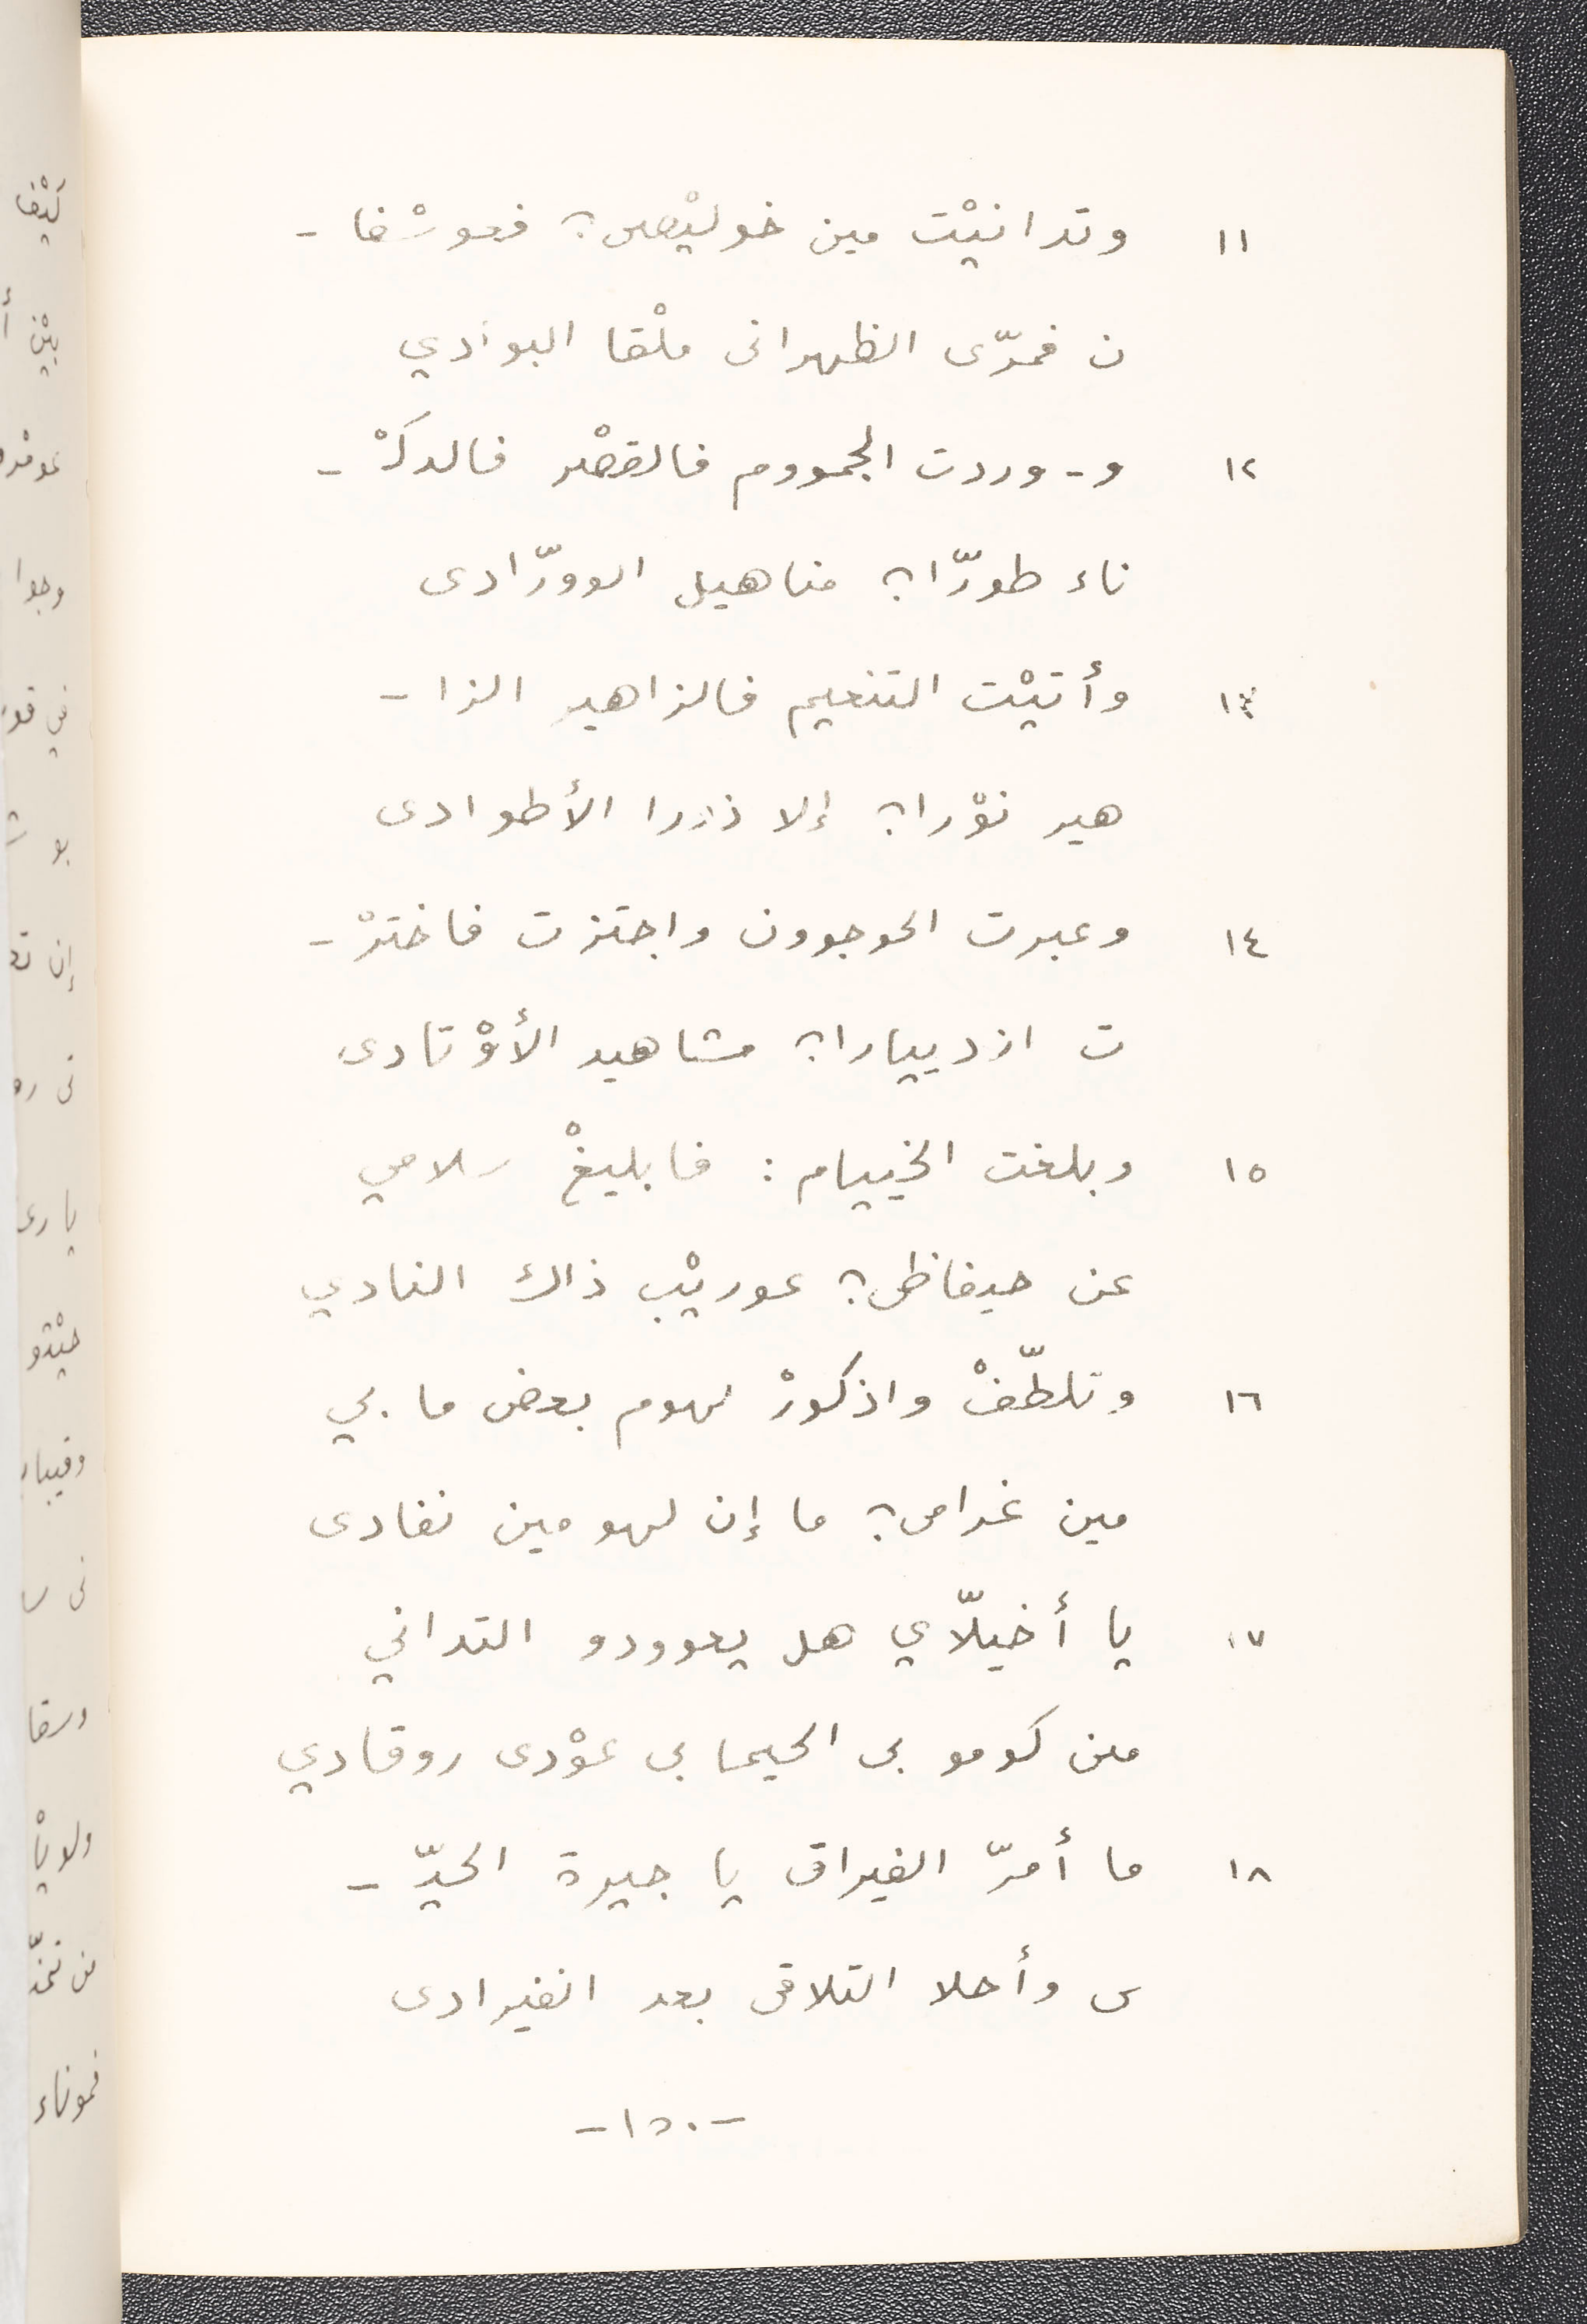 ١١ وتدانيْت مين خوليْصى؟ فعوسْفا -
ن فمرّى الظهرانى ملْقا البوادي
١٢ و- وردت الجمووم فالقصْر فالدكْ -
ناء طورّا؟ مناهيل الوورّادى
١٣ وأتيْت التنعيم فالزاهير الزا -
هير نوْرا؟ إلا ذورا الأطوادى
١٤ وعبرت الحوجوون واجتزت فاخترْ -
ت ازديپارا؟ مشاهيد الأوْتادى
١٥ وبلغت الخيپام : فابليغْ سلامي
عن حيفاظى؟ عوريْب ذاك النادي
١٦ وتلطّفْ واذكورْ لهوم بعض ما بي
مين غرامى؟ ما إن لهو مين نفادى
١٧ يا أخيلّاي هل يعوودو التداني
مين كومو بى الحيما بى عوْدى روقادي
١٨ ما أمرّ الفيراق يا جيرة الحيّ -
ى وأحلا التلاقى بعد انفيرادى
- ١٥٠ -